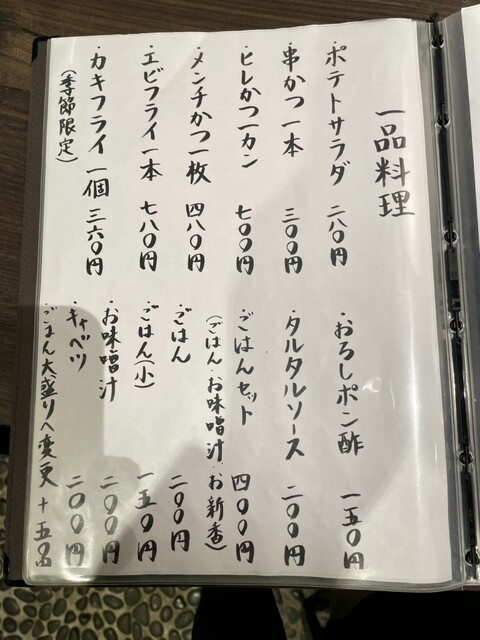 一品料理
・ポテトサラダ 二八〇円
・串かつ一本 三〇〇円
・ヒレかつ一カン 七〇〇円
・メンチかつ一枚 四八〇円
・エビフライ一本 七八〇円
・カキフライ一個 三六〇円
(季節限定)
・おろしポン酢 一五〇円
・タルタルソース 二〇〇円
・ごはんセット 四〇〇円
(ごはん・お味噌汁・お新香)
・ごはん 二〇〇円
・ごはん(小) 一五〇円
・お味噌汁 二〇〇円
・キャベツ 二〇〇円
・ごはん大盛りへ変更 +五〇円